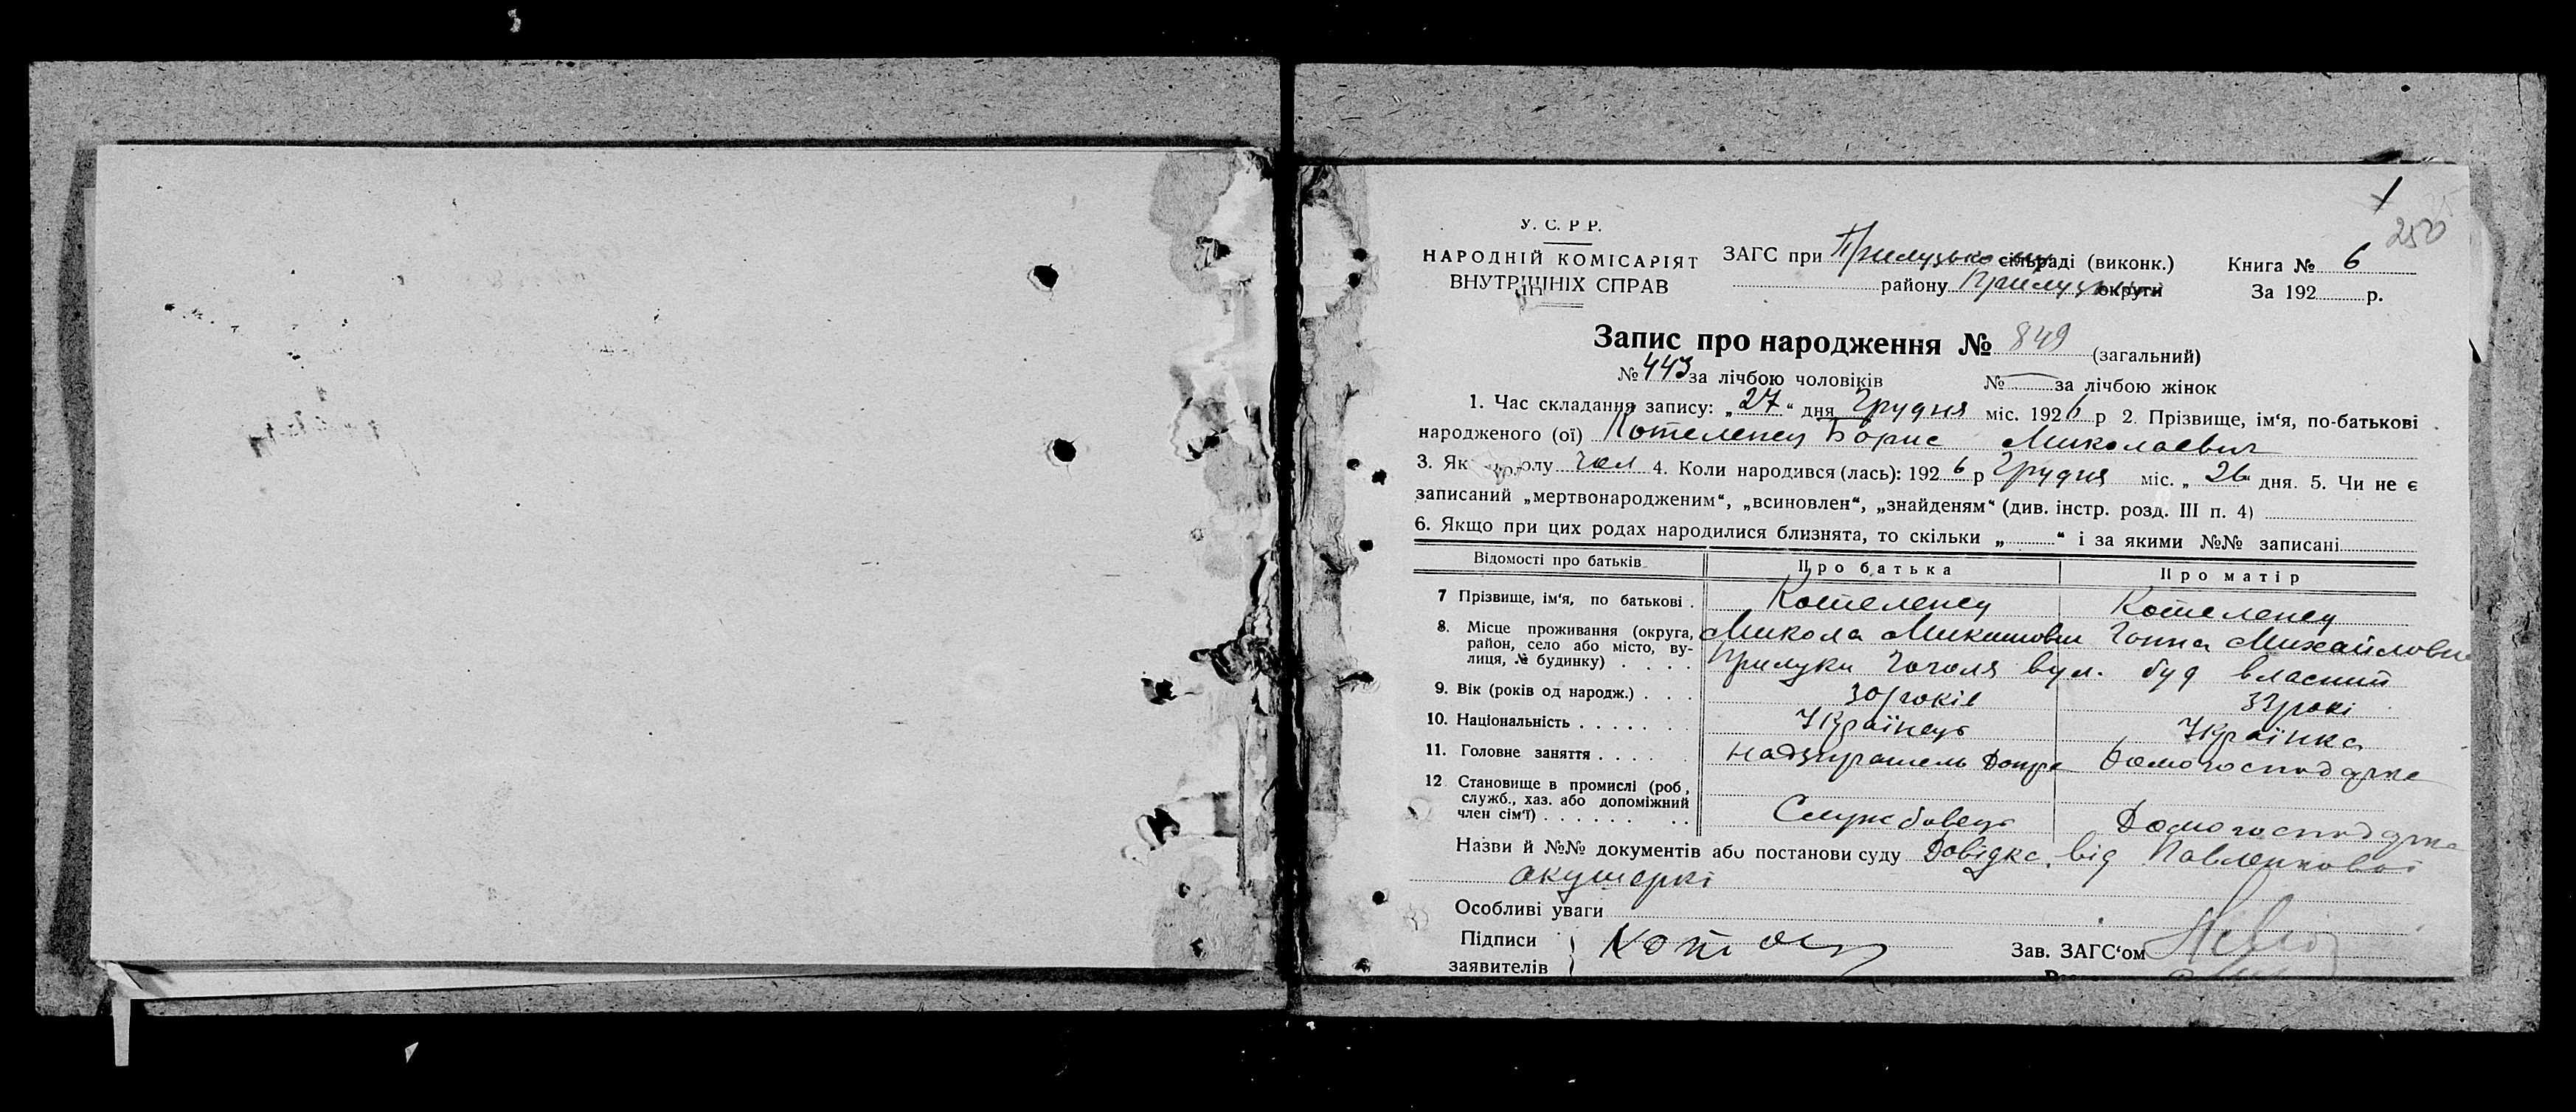 250
У. С. Р Р.
НАРОДНІЙ КОМІСАРІЯТ
ВНУТРІШНІХ СПРАВ
ЗАГС при Прилуцькому сільраді (виконк.)
району Прилуцької округи
Книга № 6
За 192 р.
Запис про народження № 849 (загальний)
№ 443 за лічбою чоловіків № — за лічбою жінок
1. Час складання запису: „27“ дня Грудня міс. 1926 р 2. Прізвище, ім‘я, по-батькові
народженого (ої) Котеленец Борис Миколаевич
3. Як полу чол 4. Коли народився (лась): 1926 р Грудня міс. „26“ дня. 5. Чи не є
записаний „мертвонародженим“, „всиновлен“, „знайденям“ (див. інстр. розд. III п. 4)
6. Якщо при цих родах народилися близнята, то скільки „ “ і за якими №№ записані
Відомості про батьків Про батька Про матір
7 Прізвище, ім‘я, по батькові . Котеленец Котеленец
8. Місце проживання (округа, район, село або місто, вулиця, № будинку) . . . . Микола Микитович Ганна Михайловна
Прилуки Гоголя вул. буд власний
9. Вік (років од народж.) . . . 30 років 33 рокі
10. Національність . . . . . . . Українець Українка
11. Головне заняття . . . . . надзиратель Допра Домогосподарка
12 Становище в промислі (роб, служб., хаз. або допоміжний член сім‘ї) . . . . . . . . Службовець Домогосподарка
Назви й №№ документів або постанови суду Довідка від Павленкової
акушеркі
Особливі уваги
Підписи
заявителів
Зав. ЗАГС‘ом